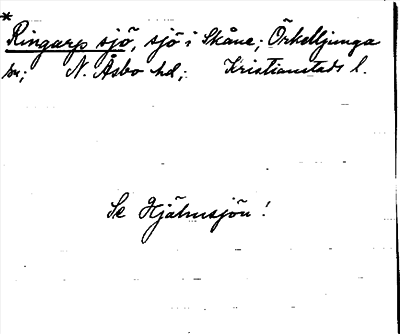 *
Ringarp sjö, sjö i Skåne; Örkelljunga
sn; N. Åsbo hd; Kristianstads l.
Se Hjälmsjön!